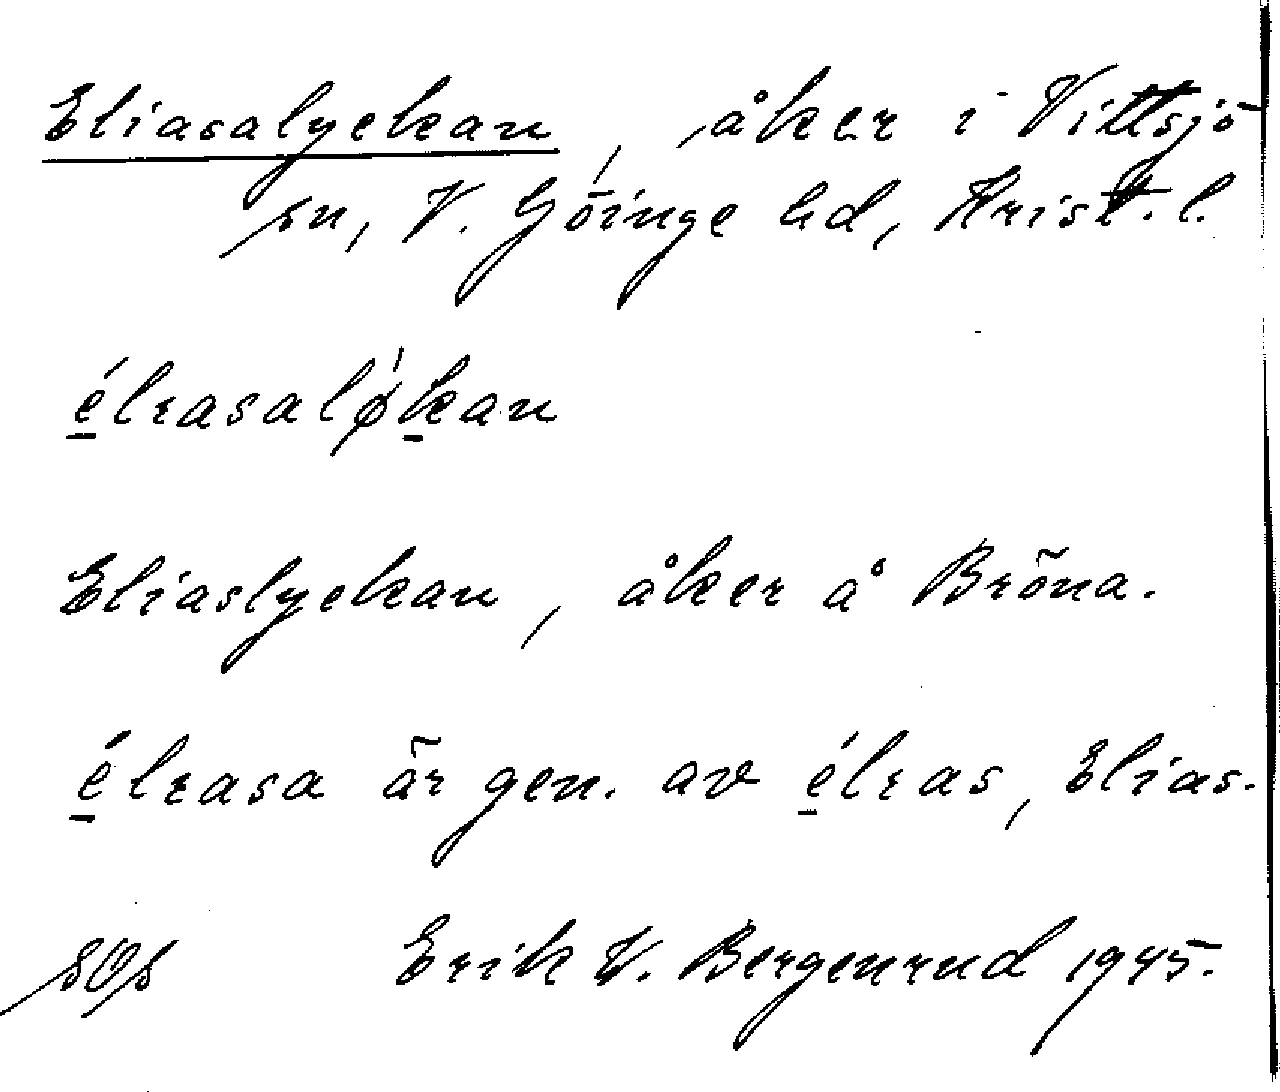 Eliasalyckan, åker i Vittsjö
sn, V. Göinge hd, Krist. l.
élɪasaløkan
Eliaslyckan, åker å Bröna.
élɪasa är gen. av élɪas, Elias.
Erik W. Bergenrud 1945.